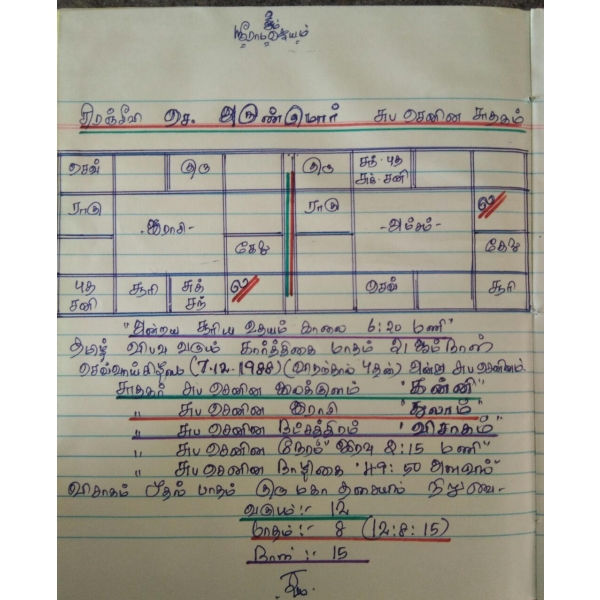 உ
ஓம்
ஸ்ரீராமஜெயம்
சிரஞ்சீவி செ. அருண்குமார் சுப ஜெனன ஜாதகம்
செவ் குரு குரு சந் - புத
சுக் - சனி
ராகு - இராசி - ராகு - அம்சம் - ல
கேது கேது
புத சனி சூரி சுக் சந் ல செவ் சூரி
"அன்றைய சூரிய உதயம் காலை 6:20 மணி"
தமிழ் விபவ வருடம் கார்த்திகை மாதம் 21 ஆம் நாள்
செவ்வாய்கிழமை (7.12.1988) (விடிந்தால் புதன்) அன்று சுப ஜெனனம்.
ஜாதகர் சுப ஜெனன இலக்கினம் "கன்னி"
" சுப ஜெனன இராசி "துலாம்"
" சுப ஜெனன நட்சத்திரம் "விசாகம்"
" சுப ஜெனன நேரம் "இரவு 2:15 மணி"
" சுப ஜெனன நாழிகை "49:50 அளவில்"
விசாகம் முதல் பாதம் குரு மகா திசையில் நிலுவை-
வருடம்:- 12
மாதம்:- 8 (12:8:15)
நாள்:- 15